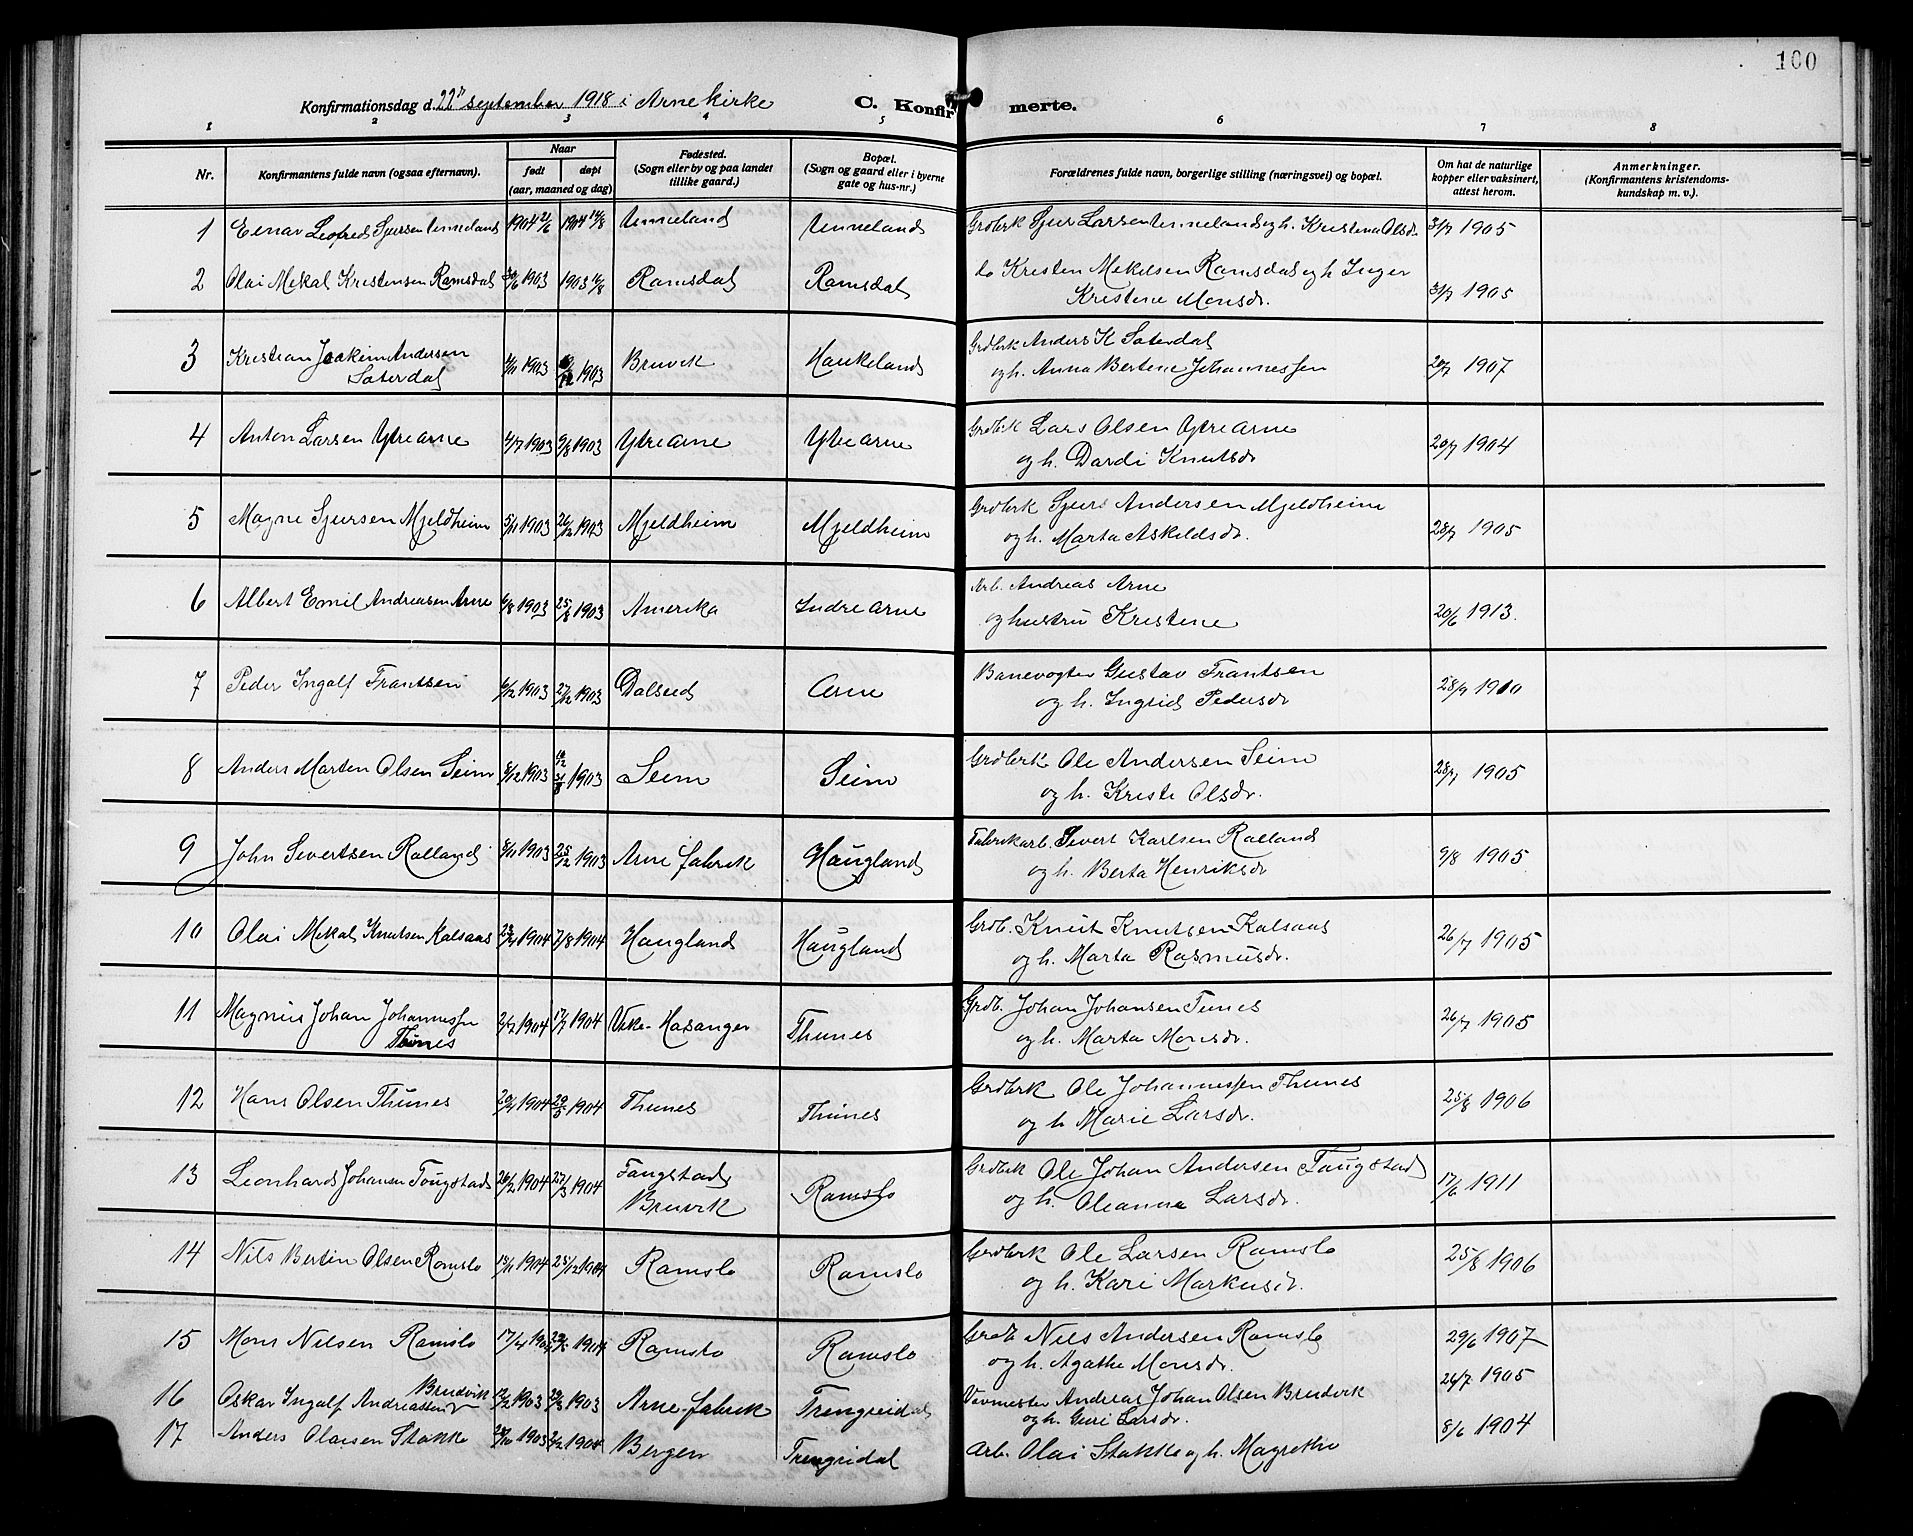 100
Konfirmationsdag d. 22de september 1918 i Arne kirke C. Konfirmerte.
1 2 3 4 5 6 7 8
Nr. Konfirmantens fulde navn (ogsaa efternavn). Naar født døpt (aar, maaned og dag) Fødested. (Sogn eller by og paa landet tillike gaard.) Bopæl. (Sogn og gaard eller i byerne gate og hus-nr.) Forældrenes fulde navn, borgerlige stilling (næringsvei) og bopæl. Om hat de naturlige kopper eller vaksinert, attest herom. Anmerkninger. (Konfirmantens kristendomskundskap m. v.).
1 Einar Leofred Sjursen Unneland 1904 2/6 1904 14/8 Unneland Unneland Grdbrk Sjur Larsen Unneland og h. Kristina Olsdr. 31/7 1905
2 Olai Mekal Kristensen Ramsdal 30/6 1903 1903 16/8 Ramsdal Ramsdal do Kristen Mekelsen Ramsdal og h Inger
Kristene Monsdr. 31/7 1905
3 Kristian Joakim Andersen 1903 1903 Bruvik Haukeland Grdbrk Anders K Sæterdal
Sæterdal og h. Anna Bertine Johannessen 20/7 1907
4 Anton Larsen Ytre Arne 6/7 1903 9/8 1903 Ytre Arne Ytre Arne Grdbrk Lars Olsen Ytre Arne
og h. Dardi Knutsdr 20/7 1904
5 Magne Sjursen Mjeldheim 5/11 1903 26/12 1903 Mjeldheim Mjeldheim Grdbrk Sjurs Andersen Mjeldheim
og h. Marta Askeldsdr. 28/7 1905
6 Albert Emil Andreasen Arne 6/8 1903 25/8 1903 Amerika Indre Arne Arb. Andreas Arne
og hustru Kristene 20/6 1913.
7 Peder Ingolf Frantsen 6/12 1903 27/12 1903 Dalseid Arne Banevogter Gustav Frantsen
og h. Ingrid Pedersdr 28/7 1910
8 Anders Marten Olsen Seim 8/12 1903 1903 Seim Seim Grdbrk Ole Andersen Seim
og h. Kriste Olsdr. 28/7 1905
9 John Sivertsen Rolland 8/11 1903 25/12 1903 Arne fabrik Haugland Fabrikarb. Sivert Karlsen Rolland
og h. Berta Henriksdr 9/8 1905
10 Olai Mekal Knutsen Kalsaas 1904 7/8 1904 Haugland Haugland Grdb. Knut Knutsen Kalsaas
og h. Marta Rasmusdr. 26/7 1905
11 Magnus Johan Johannessen 2/7 1904 17/7 1904 Vike-Hasanger Thunes Grdb. Johan Johansen Tunes
Thunes og h. Marta Monsdr. 26/7 1905
12 Hans Olsen Thunes 20/4 1904 29/5 1904 Thunes Thunes Grdbrk Ole Johannessen Thunes
og h Marie Larsdr. 25/8 1906
13 Leonhard Johansen Fougstad 26/2 1904 27/3 1904 Fougstad Ramslo Grdbrk Ole Johan Andersen Fougstad
Bruvik og h. Oleanna Larsdr. 17/6 1911
14 Nils Bertin Olsen Ramslo 15/11 1904 25/12 1904 Ramslo Ramslo Grdbrk Ole Larsen Ramslo
og h. Kari Markusdr. 25/8 1906
15 Mons Nilsen Ramslo 17/4 1904 1904 Ramslo Ramslo Grdb Nils Andersen Ramslo
og h. Agathe Monsdr. 29/6 1907
16 Oskar Ingolf Andreassen Brudvik 12/2 1903 29/3 1903 Arne fabrik Trengreidal Vævmester Andreas Johan Olsen Brudvik
og h. Guri Larsdr. 26/7 1905
17 Anders Olaisen Stokke 1903 2/2 1904 Bergen Trengridal Arb. Olai Stokke og h. Magrethe 8/6 1904